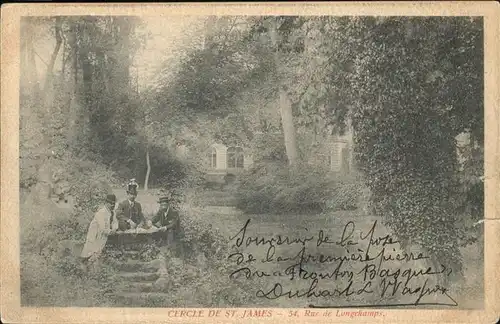 Souvenir de la Pose
de la première Pierre
du Fronton Basque
Duhart & Wagner
CERCLE DE ST. JAMES - 54, Rue de Longchamps.